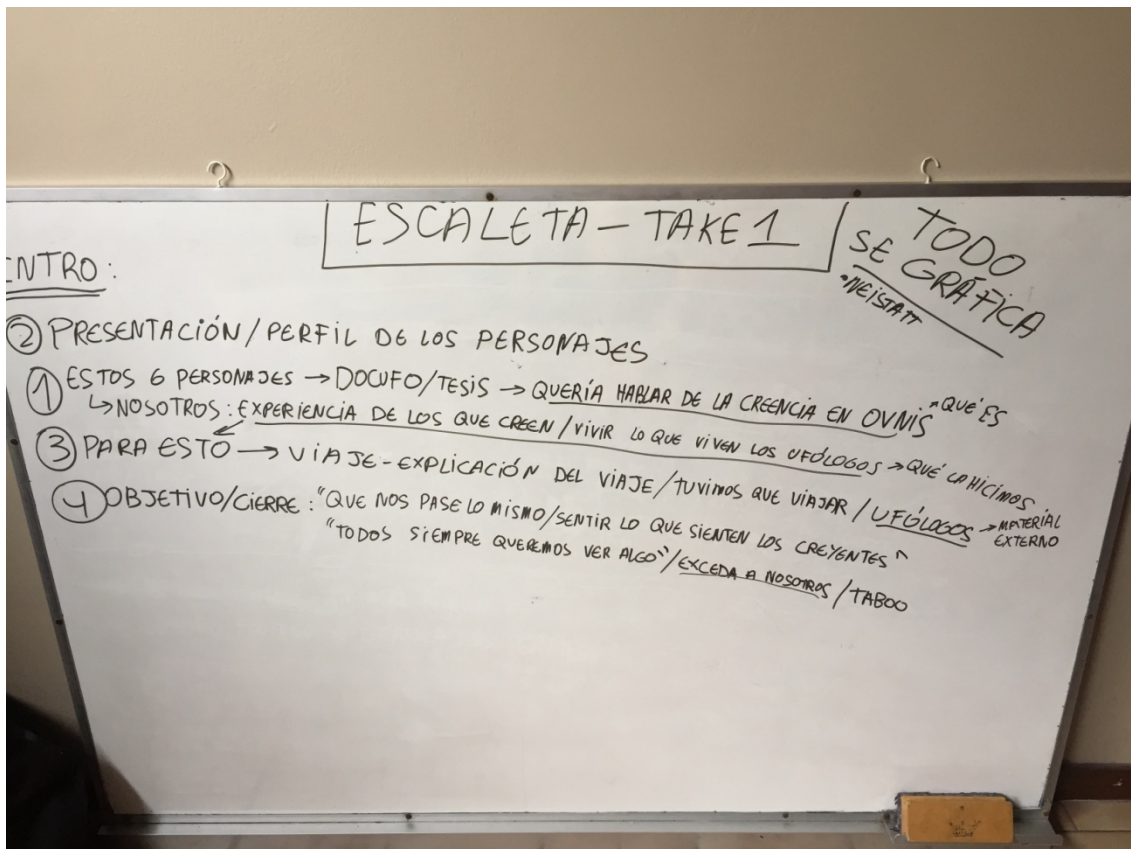 ESCALETA - TAKE 1
TODO
SE GRÁFICA
•NEISTATT
INTRO:
② PRESENTACIÓN/PERFIL DE LOS PERSONAJES
① ESTOS 6 PERSONAJES → DOCUFO/TESIS → QUERÍA HABLAR DE LA CREENCIA EN OVNIS QUÉ ES
↳ NOSOTROS: EXPERIENCIA DE LOS QUE CREEN/VIVIR LO QUE VIVEN LOS UFÓLOGOS → QUÉ HICIMOS
③ PARA ESTO → VIAJE - EXPLICACIÓN DEL VIAJE/TUVIMOS QUE VIAJAR/UFÓLOGOS → MATERIAL
EXTERNO
④ OBJETIVO/CIERRE: "QUE NOS PASE LO MISMO/SENTIR LO QUE SIENTEN LOS CREYENTES"
"TODOS SIEMPRE QUEREMOS VER ALGO"/EXCEDA A NOSOTROS/TABOO